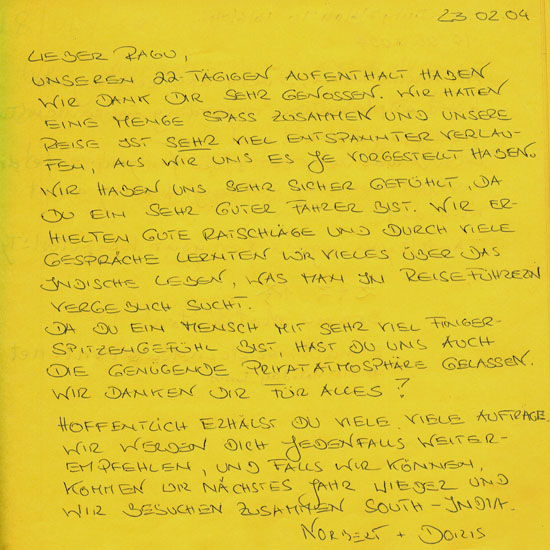 23 02 04
LIEBER RAGU,
UNSEREN 22-TÄGIGEN AUFENTHALT HABEN
WIR DANK DIR SEHR GENOSSEN. WIR HATTEN
EINE MENGE SPASS ZUSAMMEN UND UNSERE
REISE IST SEHR VIEL ENTSPANNTER VERLAU-
FEN, ALS WIR UNS ES JE VORGESTELLT HABEN.
WIR HABEN UNS SEHR SICHER GEFÜHLT, DA
DU EIN SEHR GUTER FAHRER BIST. WIR ER-
HIELTEN GUTE RATSCHLÄGE UND DURCH VIELE
GESPRÄCHE LERNTEN WIR VIELES ÜBER DAS
INDISCHE LEBEN, WAS MAN IN REISEFÜHRERN
VERGEBLICH SUCHT.
DA DU EIN MENSCH MIT SEHR VIEL FINGER-
SPITZENGEFÜHL BIST, HAST DU UNS AUCH
DIE GENÜGENDE PRIVATATMOSPHÄRE GELASSEN.
WIR DANKEN DIR FÜR ALLES!
HOFFENTLICH ERHÄLST DU VIELE, VIELE AUFTRÄGE.
WIR WERDEN DICH JEDENFALLS WEITER-
EMPFEHLEN, UND FALLS WIR KÖNNEN,
KOMMEN WIR NÄCHSTES JAHR WIEDER UND
WIR BESUCHEN ZUSAMMEN SOUTH-INDIA.
NORBERT + DORIS